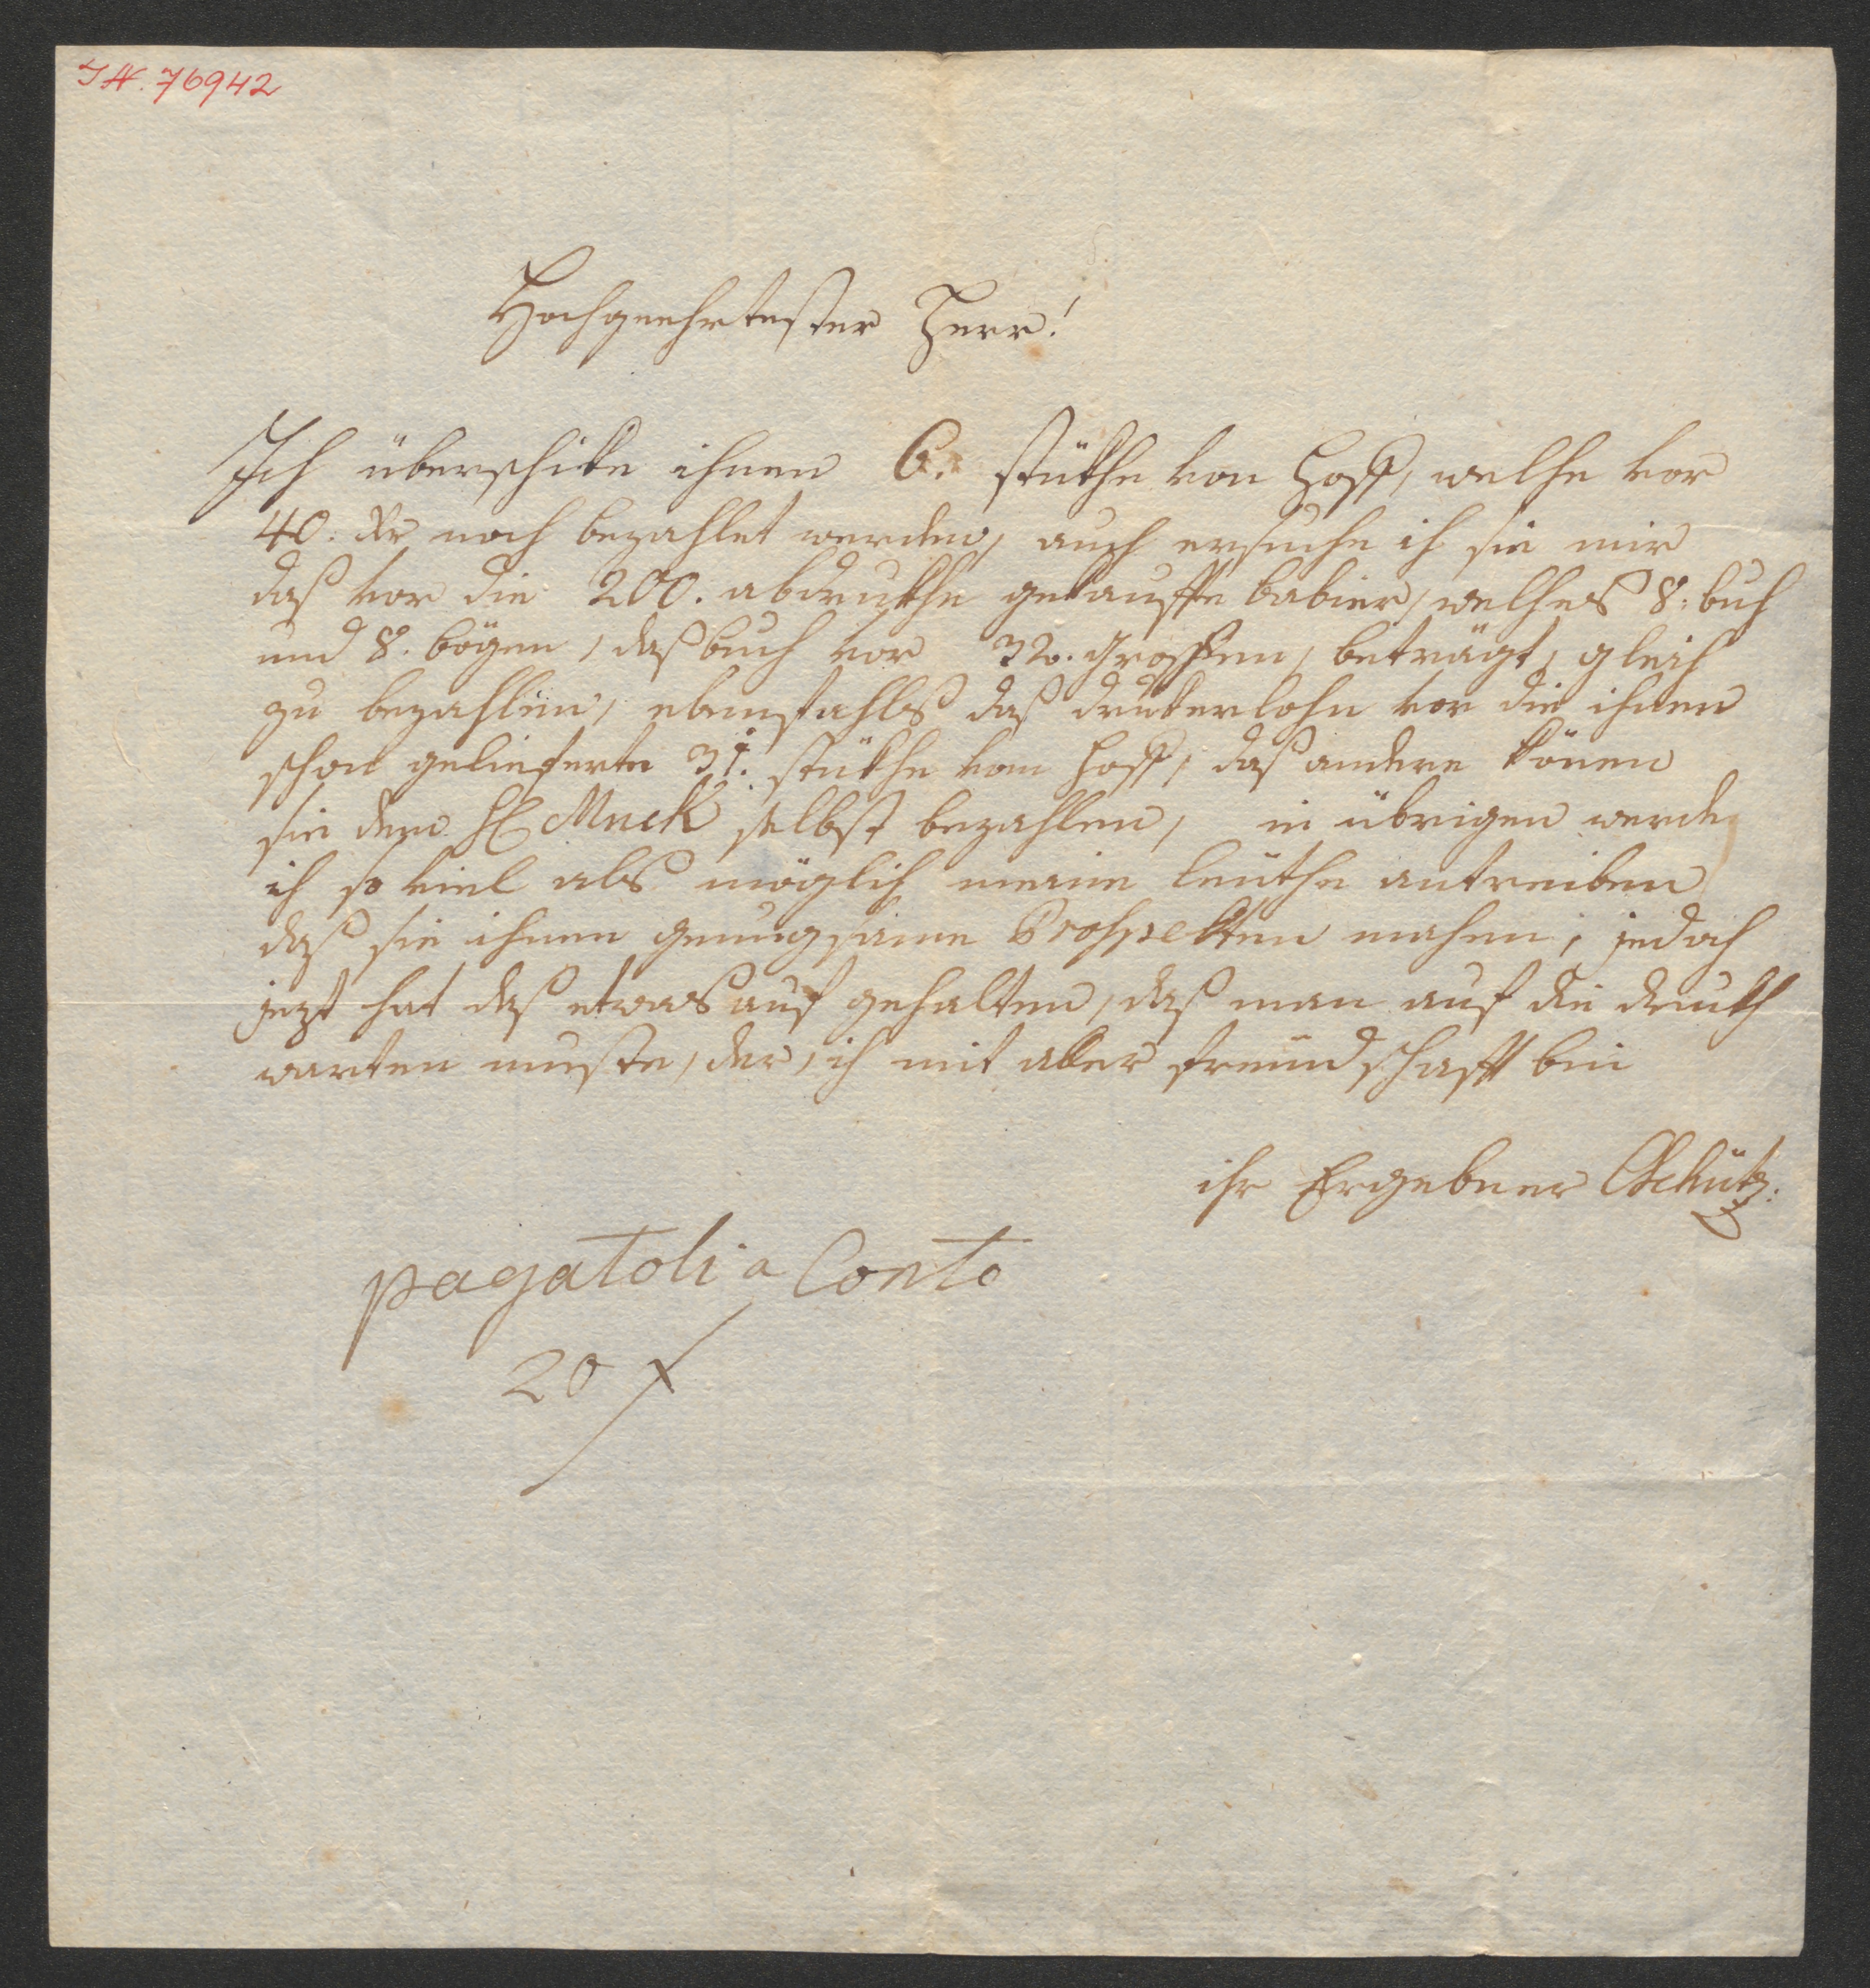 I. N. 76942
Hochgeehrtester Herr!
Ich überschike ihnen 6. stükhe von Hoff, welhe vor
40. Xr noch bezahlet werden, auch ersuche ih sie mir
daß vor die 200. abdrukhe gekauffte babier, welhes 8. buh
und 8. bögen, daß buch vor 32. Groschen, beträgt, gleih
zu bezahlen, ebenfahls daß drukerlohn vor die ihnen
schon gelieferte 31. stükhe vom Hoff, daß andere könen
sie dem H Muck selbst bezahlen, in übrigen werde
ih so viel als möglih meine leuthe antreiben
daß sie ihnen genugsame Prospekten mahen, jedoh
jezt hat deß etwas auf gehalten, daß man auf die drukh
warten muste, der, ih mit aller freundschafft bin
ihr Ergebner CSchütz.
pagatoli a Conto
20 f